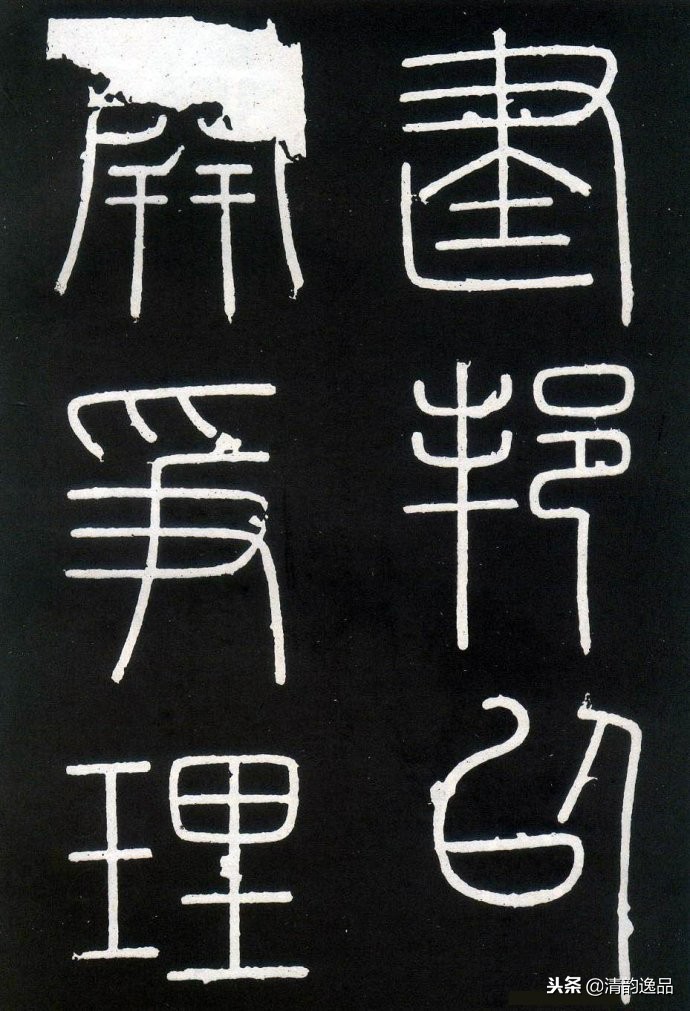 建邦以
開爭理
头条 @清韵逸品